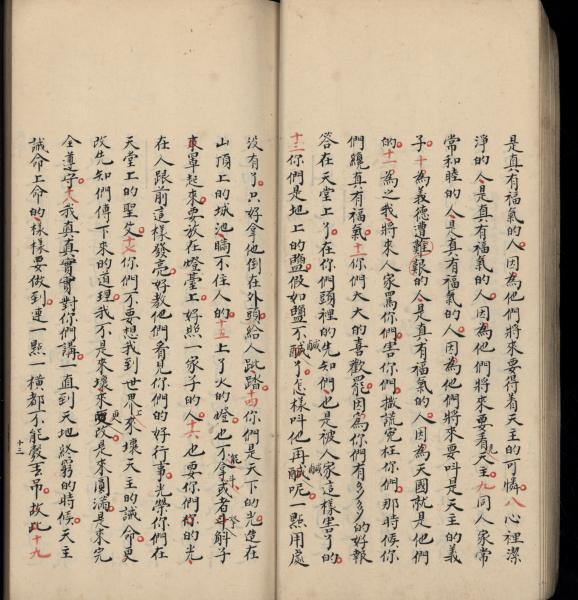 是真有福氣的人因為他們將來要得着天主的可憐八心裡潔
淨的人是真有福氣的人因為他們將來要看見天主九同人家常
常和睦的人是真有福氣的人因為他們將來要叫是天主的義
子十為義德遭難艱的人是真有福氣的人因為天國就是他們
的十一為之我將來人家罵你們害你們撒謊寃枉你們那時候你
們纔真有福氣十二你們大大的喜歡罷因為你們有多多的好報
答在天堂上了在你們頭裡的先知們也是被人家這樣害了的
十三你們是地上的鹽假如鹽不鹹了怎樣叫他再鹹呢一點用處
沒有了只好拿他倒在外頭給人跐踏十四你們是天下的光造在
山頂上的城池瞞不住人的十五上了火的燈也不拿或者斗斛子
來罩起來要放在燈臺上好照一家子的人十六也要你們的光
在人跟前這樣發亮好教他們看見你們的好行事光榮你們在
天堂上的聖父十七你們不要想我到世界上來壞天主的誡命更
改先知們傳下來的道理我不是來壞來更改是來圓滿是來完
全遵守十八我真真實實對你們講一直到天地終窮的時候天主
誡命上命的樣樣要做到連一點一橫都不能彀丟吊故此十九
十三